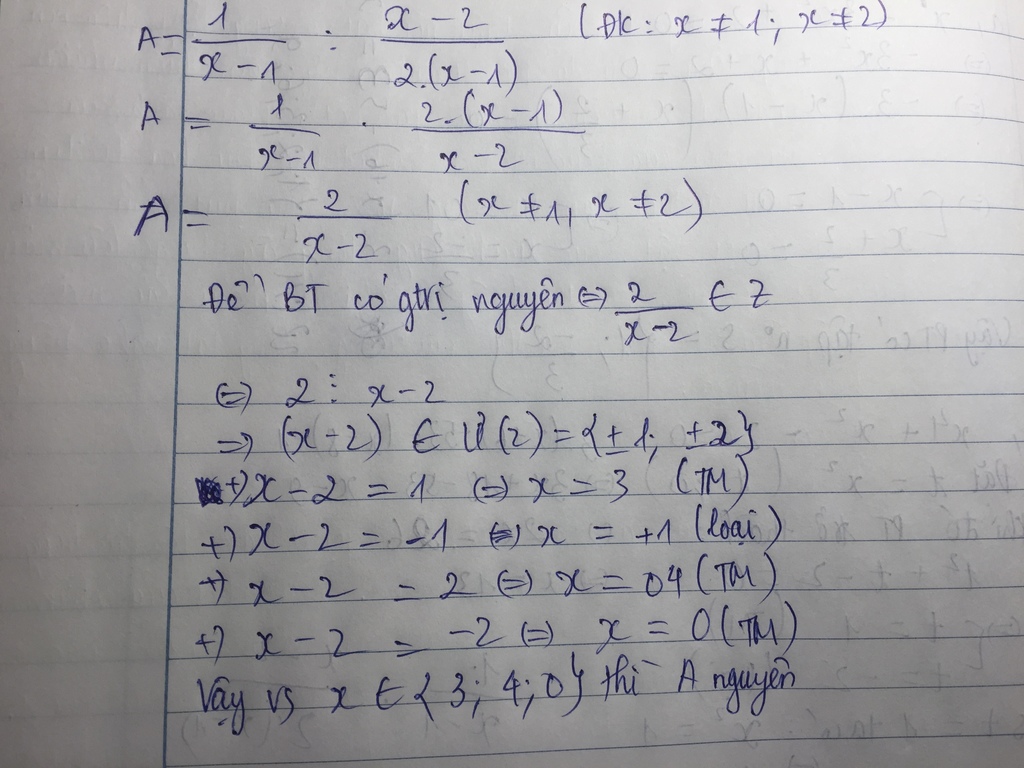 A = 1/(x - 1) : (x - 2)/(2.(x - 1)) (ĐK: x ≠ 1; x ≠ 2)
A = 1/(x - 1) . (2.(x - 1))/(x - 2)
A = 2/(x - 2) (x ≠ 1, x ≠ 2)
Để BT có gtrị nguyên ⇔ 2/(x - 2) ∈ Z
⇔ 2 ⋮ x - 2
⇒ (x - 2) ∈ Ư(2) = {±1; ±2}
+) x - 2 = 1 ⇔ x = 3 (TM)
+) x - 2 = -1 ⇔ x = +1 (loại)
+) x - 2 = 2 ⇔ x = 04 (TM)
+) x - 2 = -2 ⇔ x = 0 (TM)
Vậy vs x ∈ {3; 4; 0} thì A nguyên